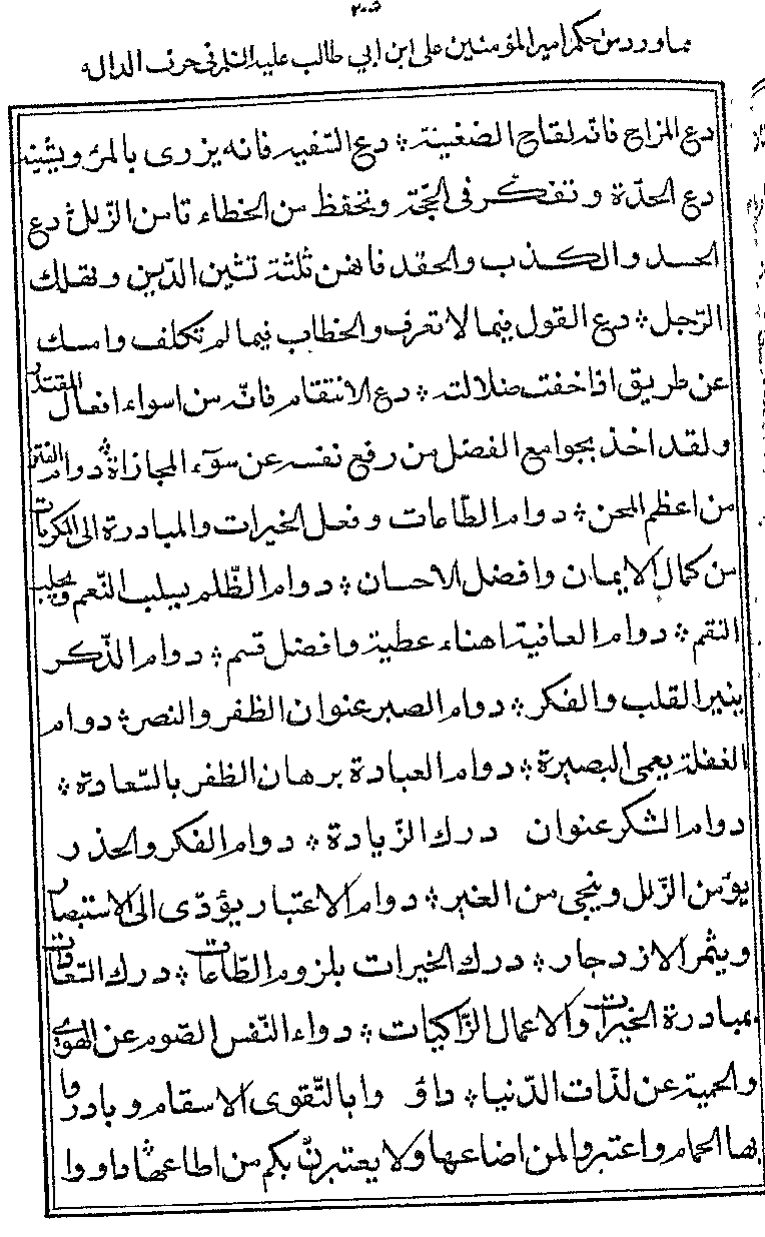 ٢٠٥
مما ورد من حكم امير المؤمنين على ابن ابي طالب عليه السلام في حرف الدال
دع المزاح فانه لقاح الضغينة ؞ دع السفه فانه يزرى بالمرء ويشينه
دع الحدّة وتفكر فى الحجّة وتحفظ من الخطاء تامن الزّلل ؞ دع
الحسد والكذب والحقد فانهن ثلثة تشين الدّين وتهلك
الرّجل ؞ دع القول فيما لا تعرف والخطاب فيما لم تكلف وامسك
عن طريق اذا خفت ضلالته ؞ دع الانتقام فانّه من اسواء افعال المقتدر
ولقد اخذ بجوامع الفضل من رفع نفسه عن سوٓء المجازاة ؞ دوام الفتن
من اعظم المحن ؞ دوام الطّاعات وفعل الخيرات والمبادرة الى المكرمات
من كمال الايمان وافضل الاحسان ؞ دوام الظّلم يسلب النّعم ويجلب
النقم ؞ دوام العافية اهناء عطية وافضل قسم ؞ دوام الذّكر
ينير القلب والفكر ؞ دوام الصبر عنوان الظفر والنصر ؞ دوام
الغفلة يعمى البصيرة ؞ دوام العبادة برهان الظفر بالسّعادة ؞
دوام الشكر عنوان درك الزّيادة ؞ دوام الفكر والحذر
يؤمن الزّلل وينجى من الغير ؞ دوام الاعتبار يؤدّى الى الاستبصار
ويثمر الازدجار ؞ درك الخيرات بلزوم الطّاعات ؞ درك السّعادات
بمبادرة الخيرات والاعمال الزّاكيات ؞ دواء النّفس الصّوم عن الهوى
والحمية عن لذّات الدّنيا ؞ داو وا بالتّقوى الاسقام وبادروا
بها الحمام واعتبروا لمن اضاعها ولا يعتبرنّ بكم من اطاعها ؞ داووا